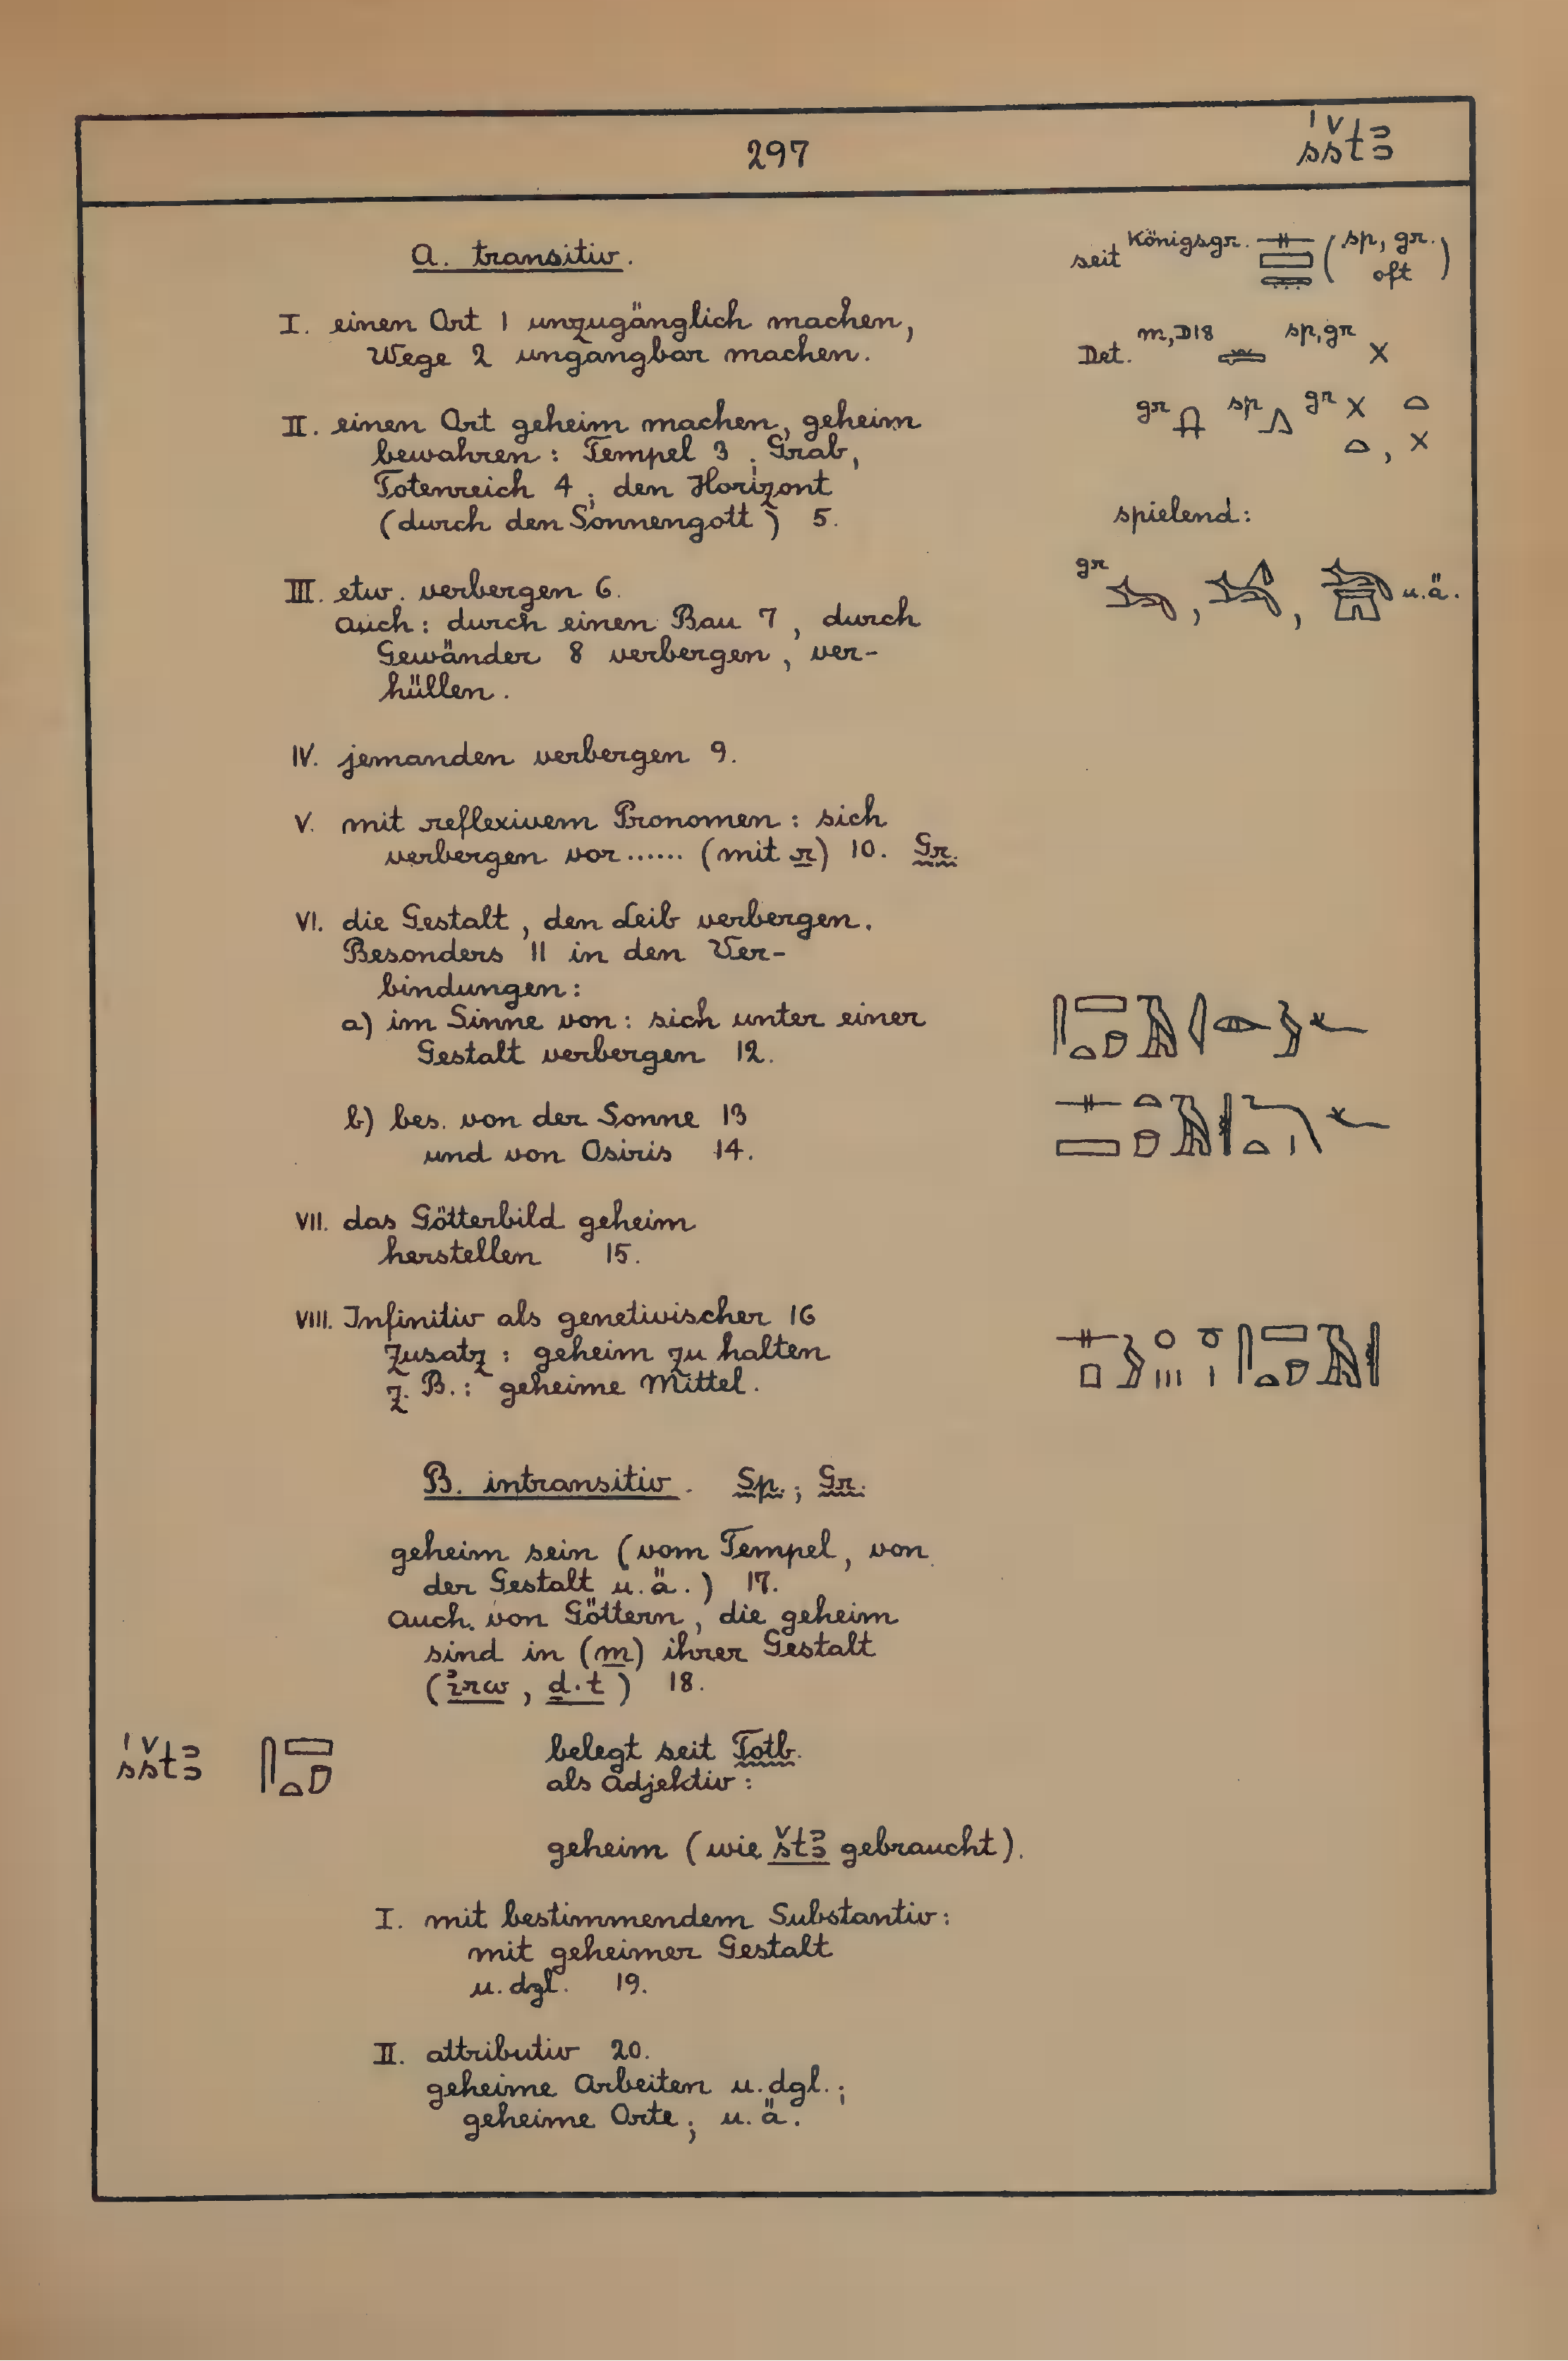 297
śštꜣ
A. transitiv.
seit Königsgr. 𓊃𓈙𓇾 (sp, gr. oft)
I. einen Ort 1 unzugänglich machen,
Wege 2 ungangbar machen.
Det. m, D18 sp, gr 𓏴
gr sp gr 𓏴𓏏, 𓏏𓏴
II. einen Ort geheim machen, geheim
bewahren: Tempel 3; Grab,
Totenreich 4; den Horizont
(durch den Sonnengott) 5.
spielend:
gr , , u.ä.
III. etw. verbergen 6.
Auch: durch einen Bau 7, durch
Gewänder 8 verbergen, ver-
hüllen.
IV. jemanden verbergen 9.
V. mit reflexivem Pronomen: sich
verbergen vor...... (mit r) 10. Gr.
VI. die Gestalt, den Leib verbergen.
Besonders 11 in den Ver-
bindungen:
a) im Sinne von: sich unter einer
Gestalt verbergen 12.
b) bes. von der Sonne 13
und von Osiris 14.
VII. das Götterbild geheim
herstellen 15.
VIII. Infinitiv als genetivischer 16
Zusatz: geheim zu halten
z. B.: geheime Mittel.
B. intransitiv. Sp.; Gr.
geheim sein (vom Tempel, von
der Gestalt u.ä.) 17.
Auch von Göttern, die geheim
sind in (m) ihrer Gestalt
(ꞽrw, ḏ.t) 18.
śštꜣ 𓋴𓈙𓏏𓎡
belegt seit Totb.
als Adjektiv:
geheim (wie štꜣ gebraucht).
I. mit bestimmendem Substantiv:
mit geheimer Gestalt
u. dgl. 19.
II. attributiv 20.
geheime Arbeiten u. dgl.;
geheime Orte; u.ä.